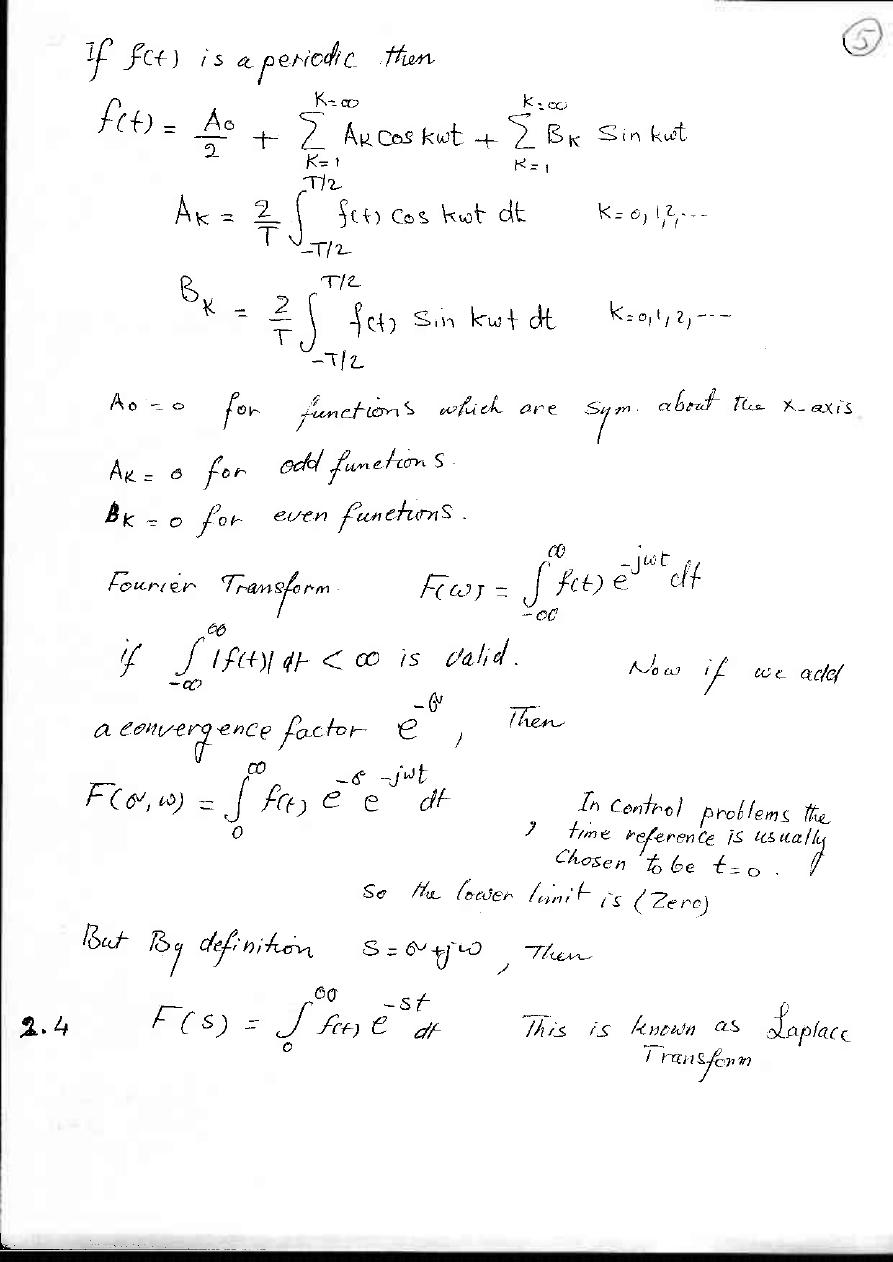 5
If f(t) is a periodic then
f(t) = A₀/2 + ∑_{K=1}^{K=∞} A_K cos kωt + ∑_{K=1}^{K=∞} B_K Sin kωt
A_K = 2/T ∫_{-T/2}^{T/2} f(t) cos kωt dt K = 0, 1, 2, ---
B_K = 2/T ∫_{-T/2}^{T/2} f(t) sin kωt dt K = 0, 1, 2, ---
A₀ = 0 for functions which are sym. about the x-axis
A_K = 0 for odd functions.
B_K = 0 for even functions.
Fourier Transform. F(ω) = ∫_{-∞}^{∞} f(t) e^{-jωt} dt
if ∫_{-∞}^{∞} |f(t)| dt < ∞ is valid. Now if we add
a convergence factor e^{-σ}, Then
F(σ, ω) = ∫_{0}^{∞} f(t) e^{-σ} e^{-jωt} dt , In control problems the
time reference is usually
chosen to be t=0.
So the lower limit is (Zero)
But By definition S = σ+jω, Then
2.4 F(S) = ∫_{0}^{∞} f(t) e^{-st} dt This is known as Laplace
Transform